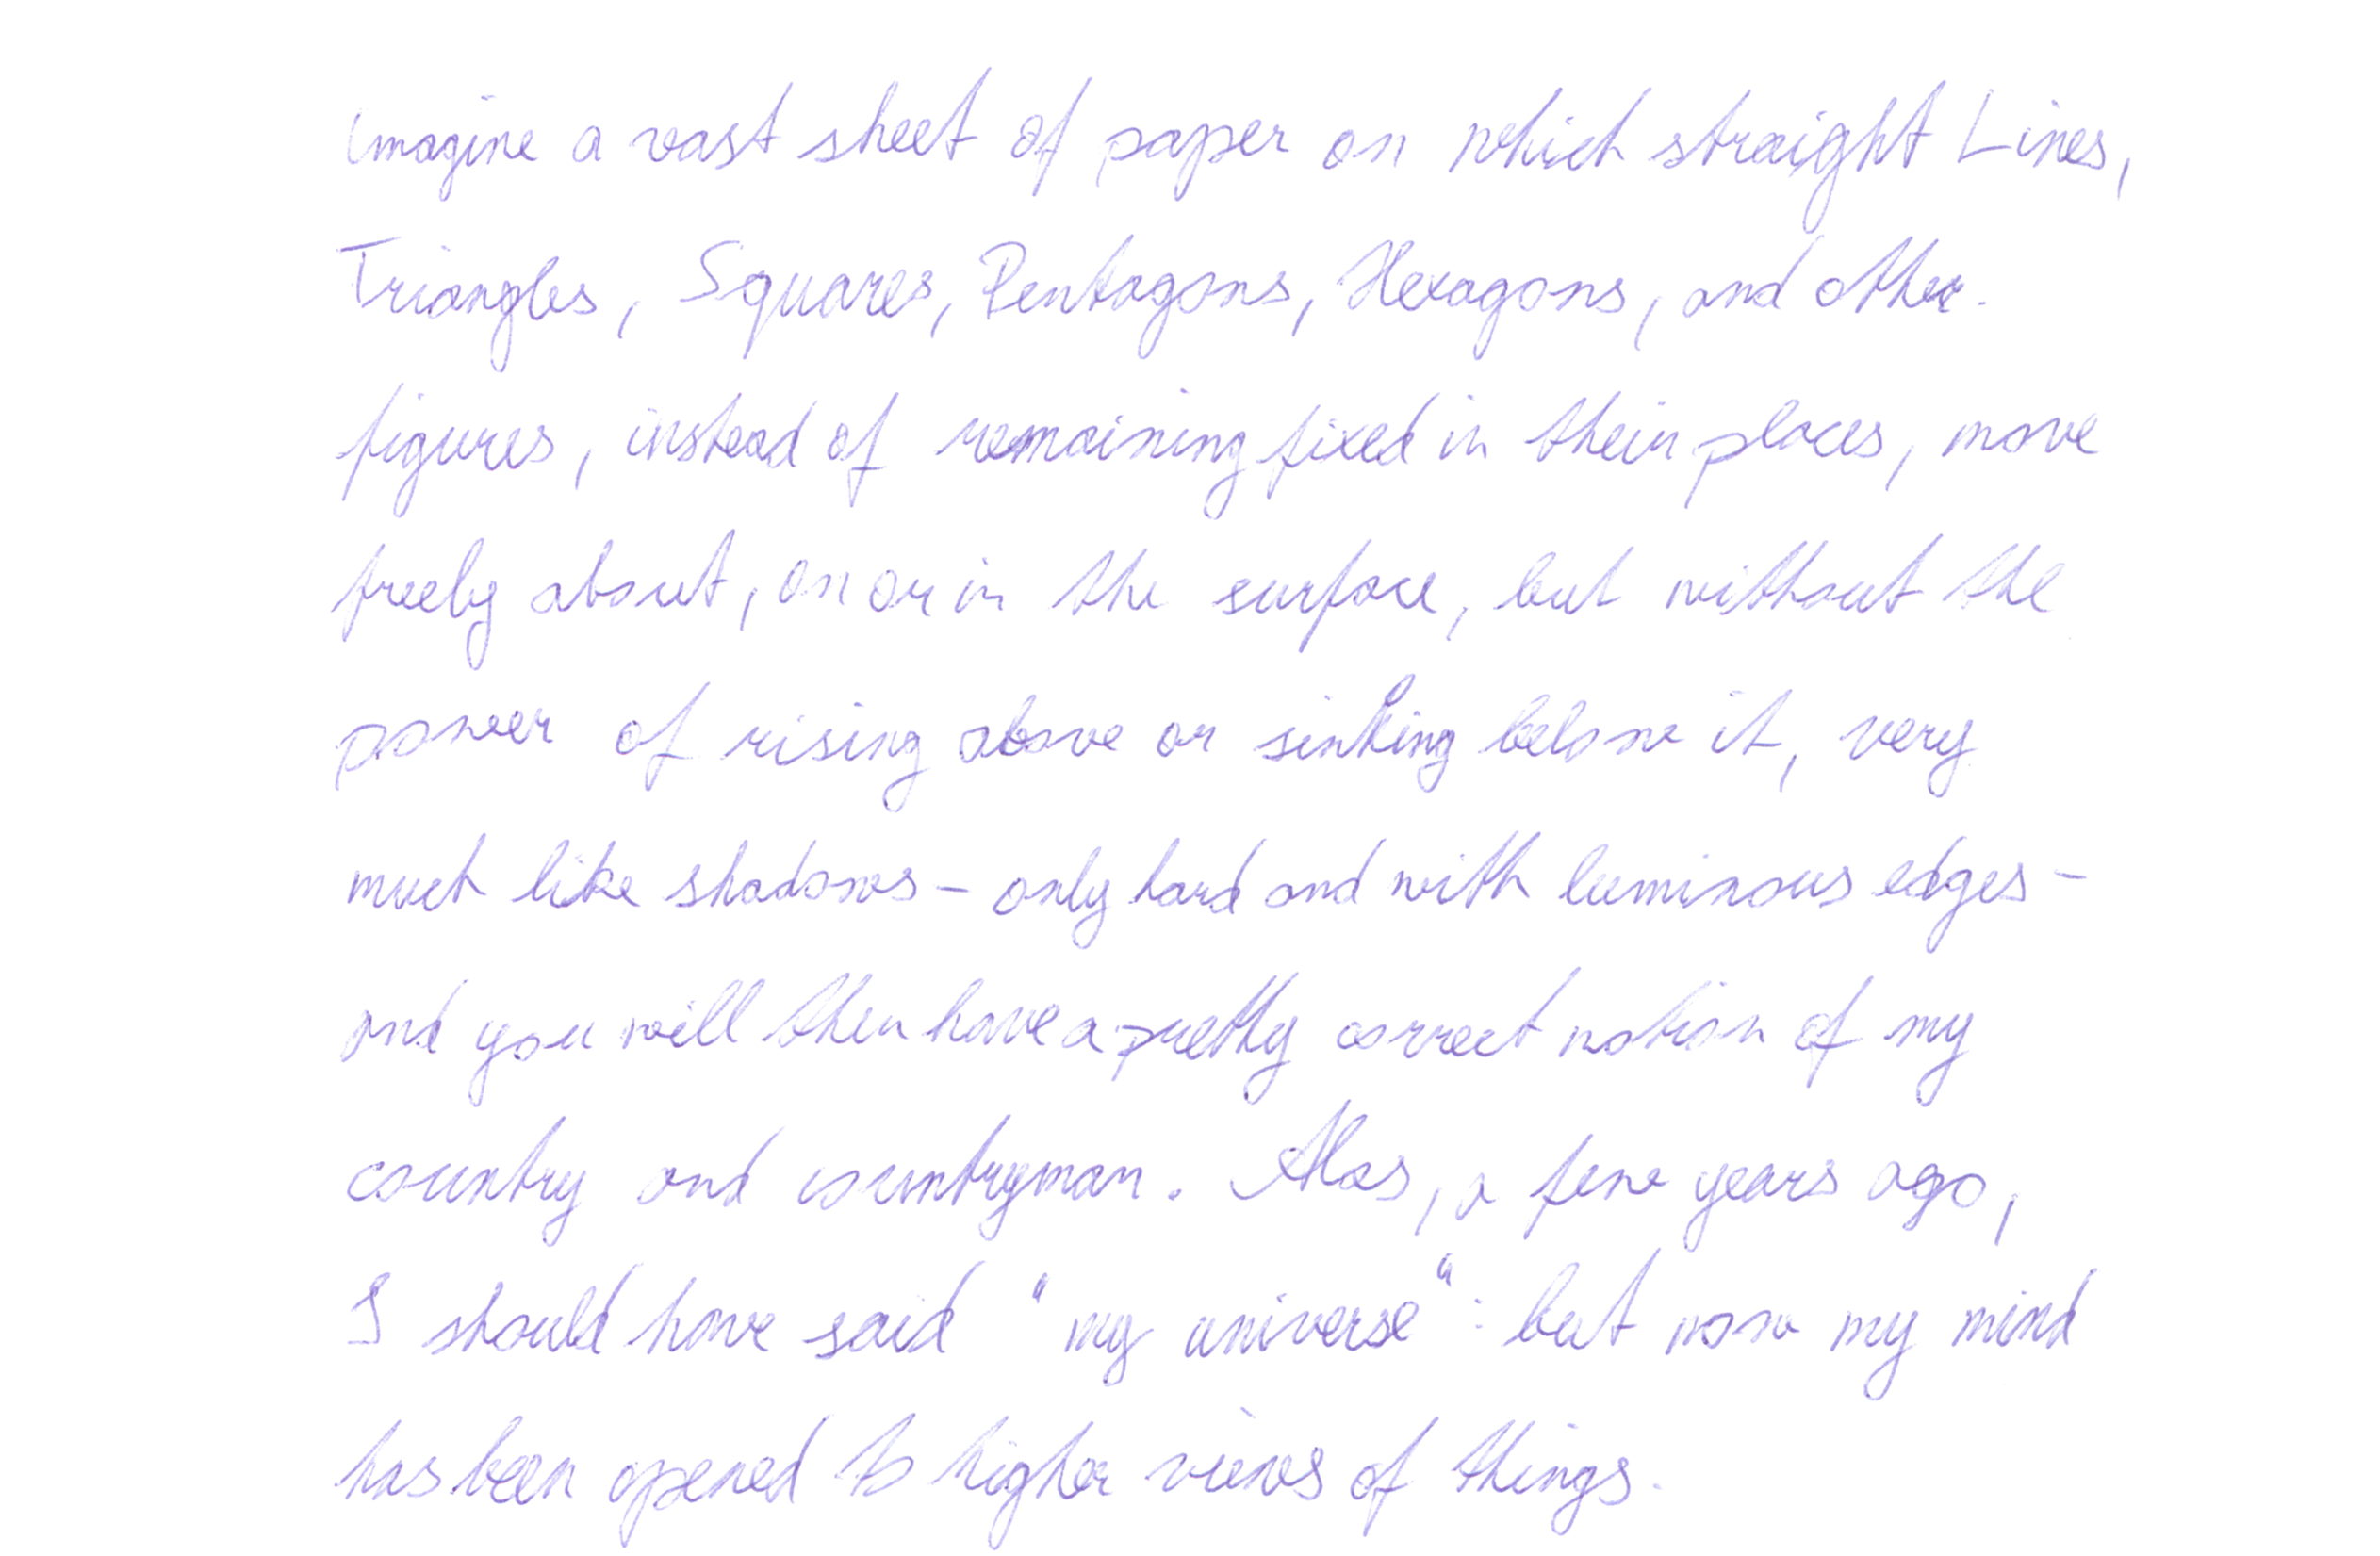 Imagine a vast sheet of paper on which straight Lines,
Triangles, Squares, Pentagons, Hexagons, and other
figures, instead of remaining fixed in their places, move
freely about, on or in the surface, but without the
power of rising above or sinking below it, very
much like shadows – only hard and with luminous edges –
and you will then have a pretty correct notion of my
country and countryman. Alas, a few years ago,
I should have said "my universe": but now my mind
has been opened to higher views of things.